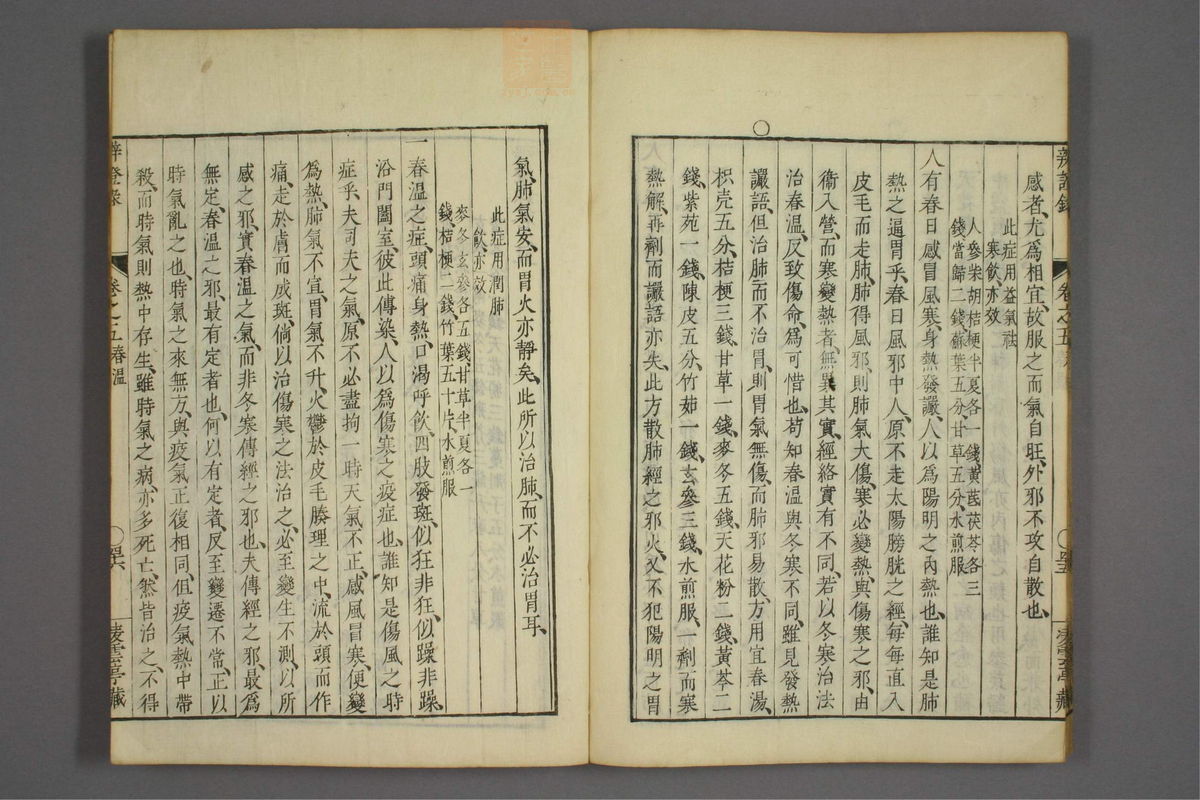 感者、尤爲相宜、故服之而氣自旺、外邪不攻自散也、
此症用益氣祛
寒飲亦效
人參柴胡桔梗半夏各一錢黃芪茯苓各三
錢當歸二錢蘇葉五分甘草五分水煎服
人有春日感冒風寒、身熱發讝、人以爲陽明之內熱也、誰知是肺
熱之逼胃乎、春日風邪中人、原不走太陽膀胱之經、每每直入
皮毛而走肺、肺得風邪、則肺氣大傷、寒必變熱、與傷寒之邪、由
衞入營而寒變熱者無異、其實經絡實有不同、若以冬寒治法
治春温、反致傷命、爲可惜也、苟知春温與冬寒不同、雖見發熱
讝語、但治肺而不治胃、則胃氣無傷、而肺邪易散、方用宜春湯、
枳壳五分、桔梗三錢、甘草一錢、麥冬五錢、天花粉二錢、黃芩二
錢、紫苑一錢、陳皮五分、竹茹一錢、玄參三錢、水煎服、一劑而寒
熱解、再劑而讝語亦失、此方散肺經之邪火、又不犯陽明之胃
辨證錄
卷之五
凌雲亭藏
氣、肺氣安、而胃火亦靜矣、此所以治肺、而不必治胃耳、
此症用潤肺
飲亦效
麥冬玄參各五錢甘草半夏各一
錢、桔梗二錢、竹葉五十片、水煎服
一春温之症、頭痛身熱、口渴呼飲、四肢發斑、似狂非狂、似躁非躁、
沿門闔室、彼此傳染、人以爲傷寒之疫症也、誰知是傷風之時
症乎、夫司夫之氣、原不必盡拘、一時天氣不正、感風冒寒、便變
爲熱、肺氣不宜、胃氣不升、火鬱於皮毛腠理之中、流於頭而作
痛、走於膚而成斑、倘以治傷寒之法治之、必至變生不測、以所
感之邪、實春温之氣、而非冬寒傳經之邪也、夫傳經之邪、最爲
無定、春温之邪、最有定者也、何以有定者、反至變遷不常、正以
時氣亂之也、時氣之來無方、與疫氣正復相同、但疫氣熱中帶
殺、而時氣則熱中存生、雖時氣之病、亦多死亡、然皆治之、不得
辨證錄
卷之五春温
凌雲亭藏